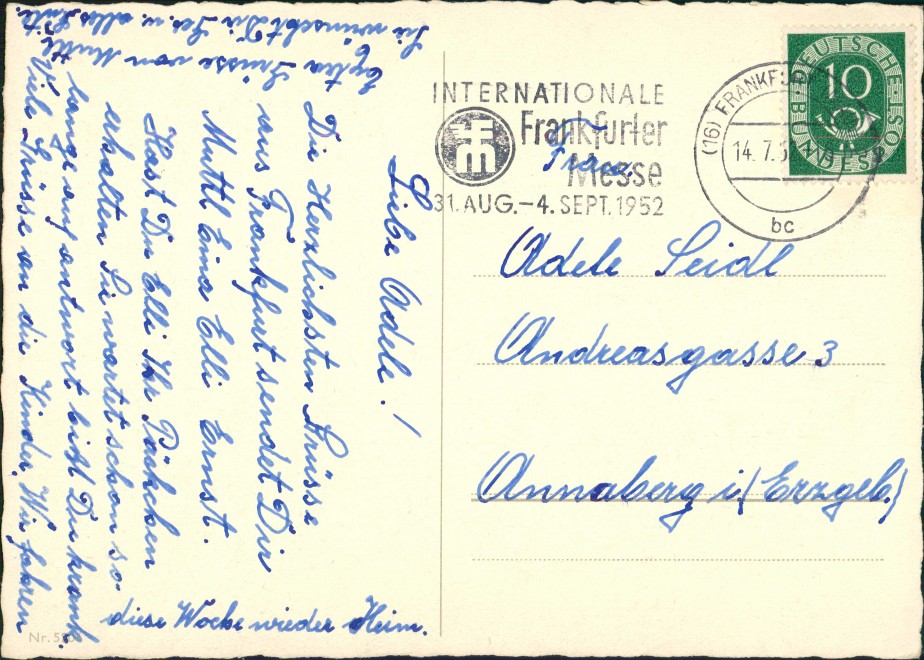 Liebe Adele!
Die Herzlichsten Grüsse
aus Frankfurt sendet Dir
Muttl Erna Elli Ernst.
Hast Du Elli Ihr Päckchen
erhalten Sie wartet schon so
lange auf antwort bist Du krank.
Viele Grüsse an die Kinder. Wir fahren
diese Woche wieder Heim.
Extra Grüsse von Muttl
Sie wünscht Dir Ges. u. alles Gute.
INTERNATIONALE
Frankfurter
Messe
31. AUG.–4. SEPT. 1952
(16) FRANKFU
14. 7. 5
bc
DEUTSCHE BUNDESPOST
10
Frau
Adele Seidl
Andreasgasse 3
Annaberg i/Erzgeb.
Nr. 5